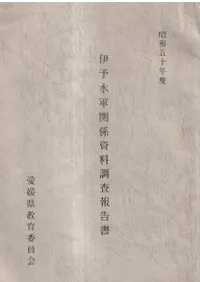 昭和五十年度
伊予水軍関係資料調査報告書
愛媛県教育委員会